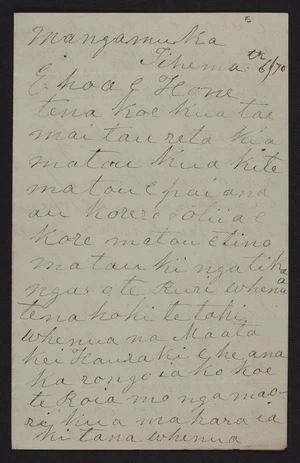 Mangamuka
Tihema th 6/70
E hoa e Hone
tena koe kua tae
mai tau reta kia
matou kua kite
matou e pai ana
au korero otiia e
kore matou e tino
matau ki nga tika
nga o te Ruri whenua
tena hoki te tahi
whenua na Maata
kei Hauraki e he ana
ka rongo ia ko koe
te Roia mo nga mao-
ri kua mahara ia
ki tana whenua